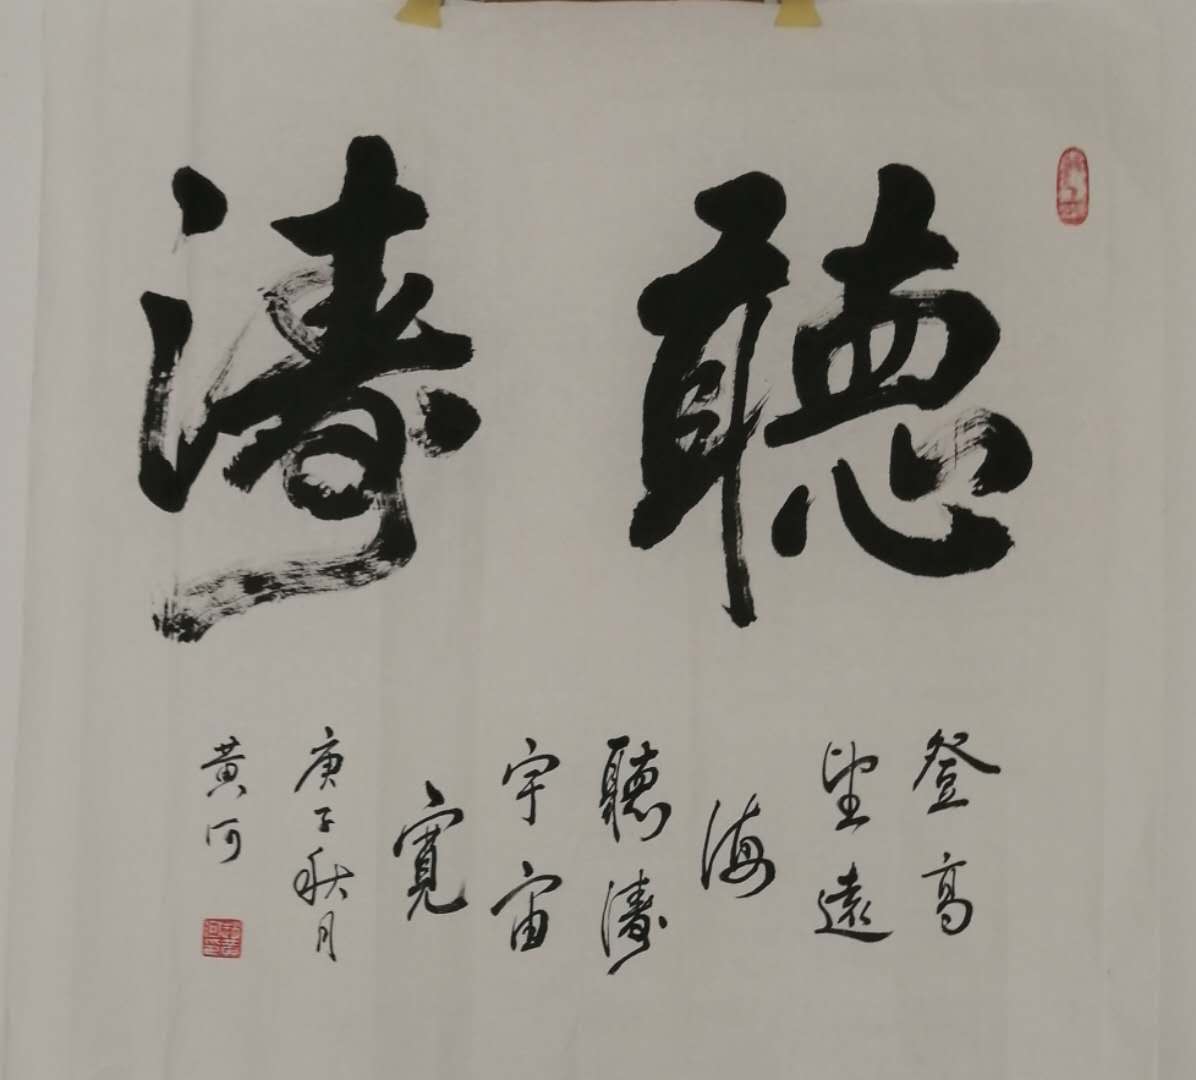 聽濤
登高
望遠
海
聽濤
宇宙
寬
庚子秋月
黄河